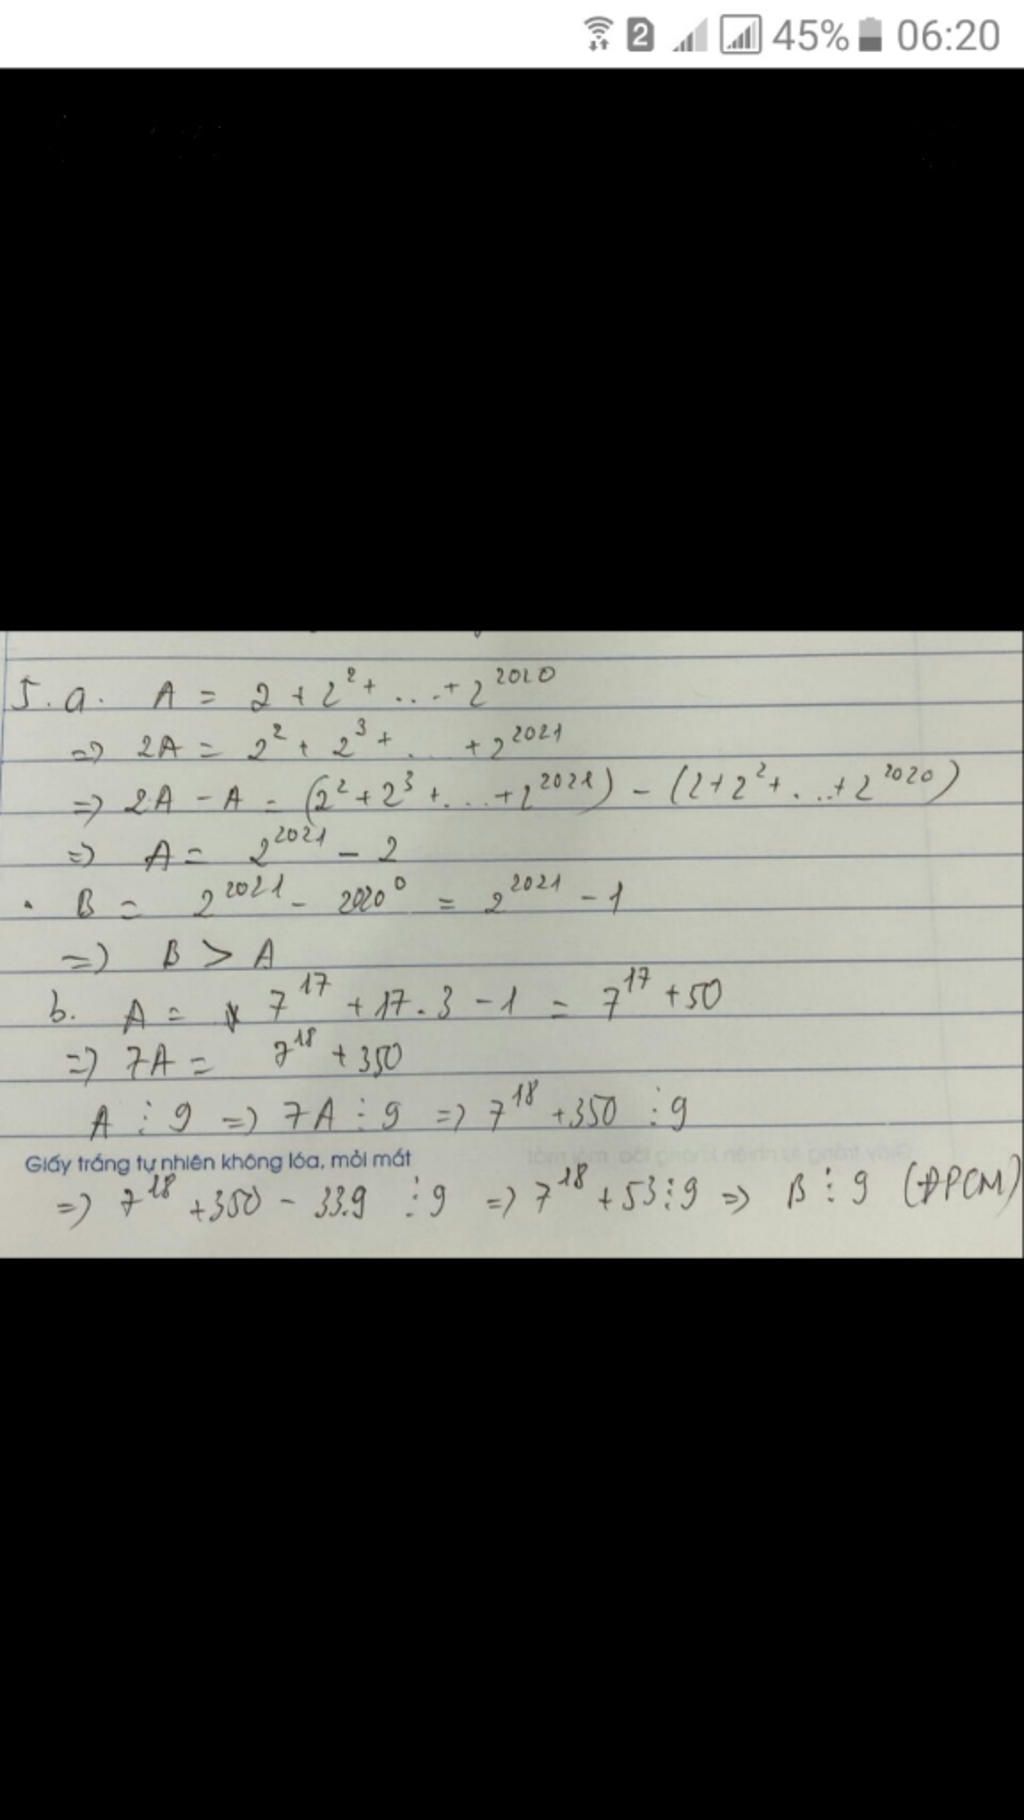 2 45% 06:20
5. a. A = 2 + 2² + ... + 2²⁰²⁰
=> 2A = 2² + 2³ + ... + 2²⁰²¹
=> 2A - A = (2² + 2³ + ... + 2²⁰²¹) - (2 + 2² + ... + 2²⁰²⁰)
=> A = 2²⁰²¹ - 2
. B = 2²⁰²¹ - 2020⁰ = 2²⁰²¹ - 1
=> B > A
b. A = 7¹⁷ + 17.3 - 1 = 7¹⁷ + 50
=> 7A = 7¹⁸ + 350
A ⋮ 9 => 7A ⋮ 9 => 7¹⁸ + 350 ⋮ 9
Giấy trắng tự nhiên không lóa, mỏi mắt
=> 7¹⁸ + 350 - 33.9 ⋮ 9 => 7¹⁸ + 53 ⋮ 9 => B ⋮ 9 (ĐPCM)